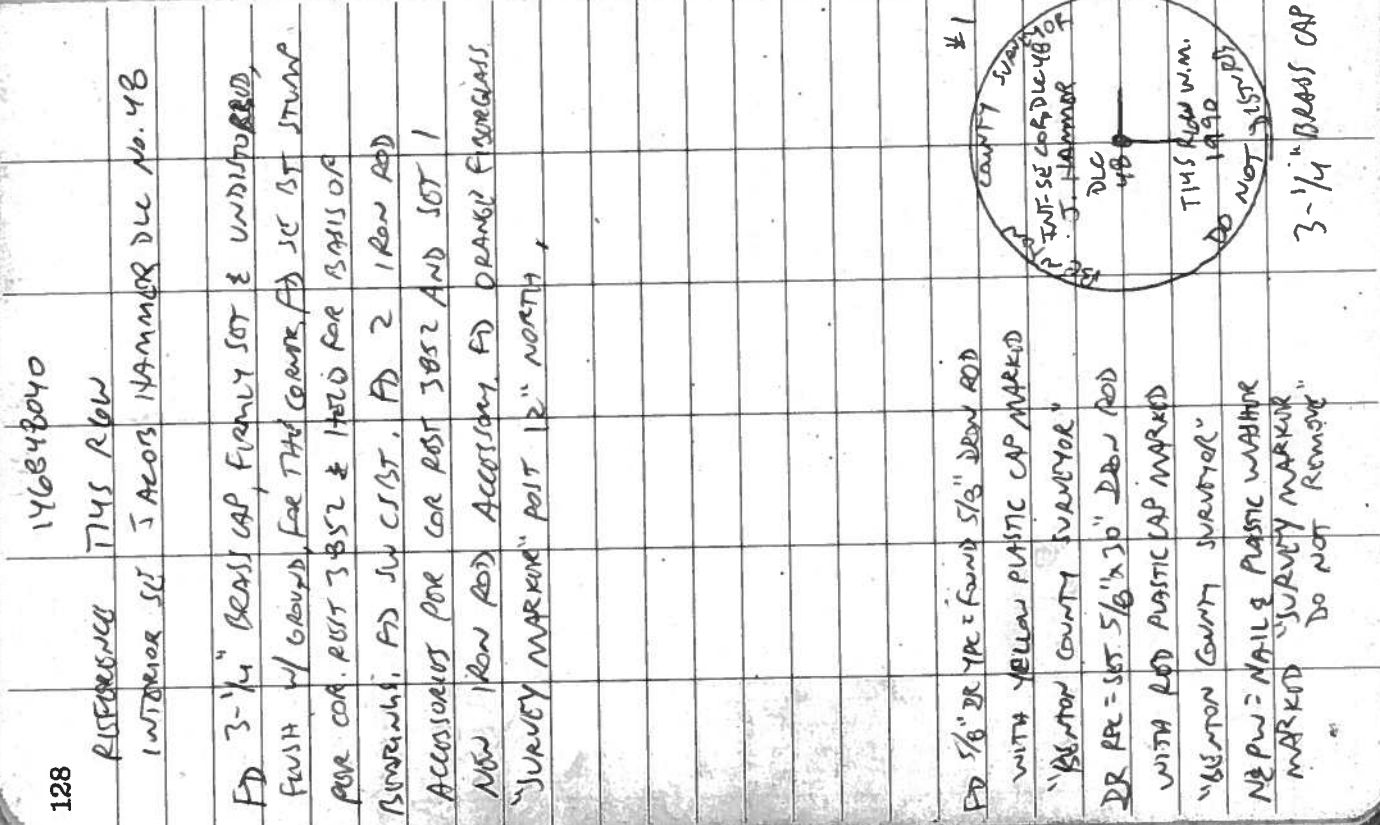 128
146B48040
REFERENCE T14S R6W
INTERIOR SE JACOB HAMMER DLC No. 48
FD 3-1/4" BRASS CAP, FIRMLY SET & UNDISTURBED,
FLUSH W/ GROUND, FOR THE CORNER, FD SE BT STUMP
PER COR. REST 3852 & HELD FOR BASIS OF
BEARINGS. FD SW CSBT. FD 2 IRON ROD
ACCESSORIES PER COR REST 3852 AND SET 1
NEW IRON ROD ACCESSORY. FD ORANGE FIBERGLASS
"SURVEY MARKER" POST 12" NORTH,
#1
FD 5/8" IR YPC = FOUND 5/8" IRON ROD
WITH YELLOW PLASTIC CAP MARKED
"BENTON COUNTY SURVEYOR"
IR RPC = SET 5/8"x30" IRON ROD
WITH RED PLASTIC CAP MARKED
"BENTON COUNTY SURVEYOR"
N&PW = NAIL & PLASTIC WASHER
MARKED "SURVEY MARKER
DO NOT REMOVE"
BENTON COUNTY SURVEYOR
INT-SE COR DLC 48
J. HAMMER
DLC
48
T14S R6W W.M.
1990
DO NOT DISTURB
3-1/4" BRASS CAP